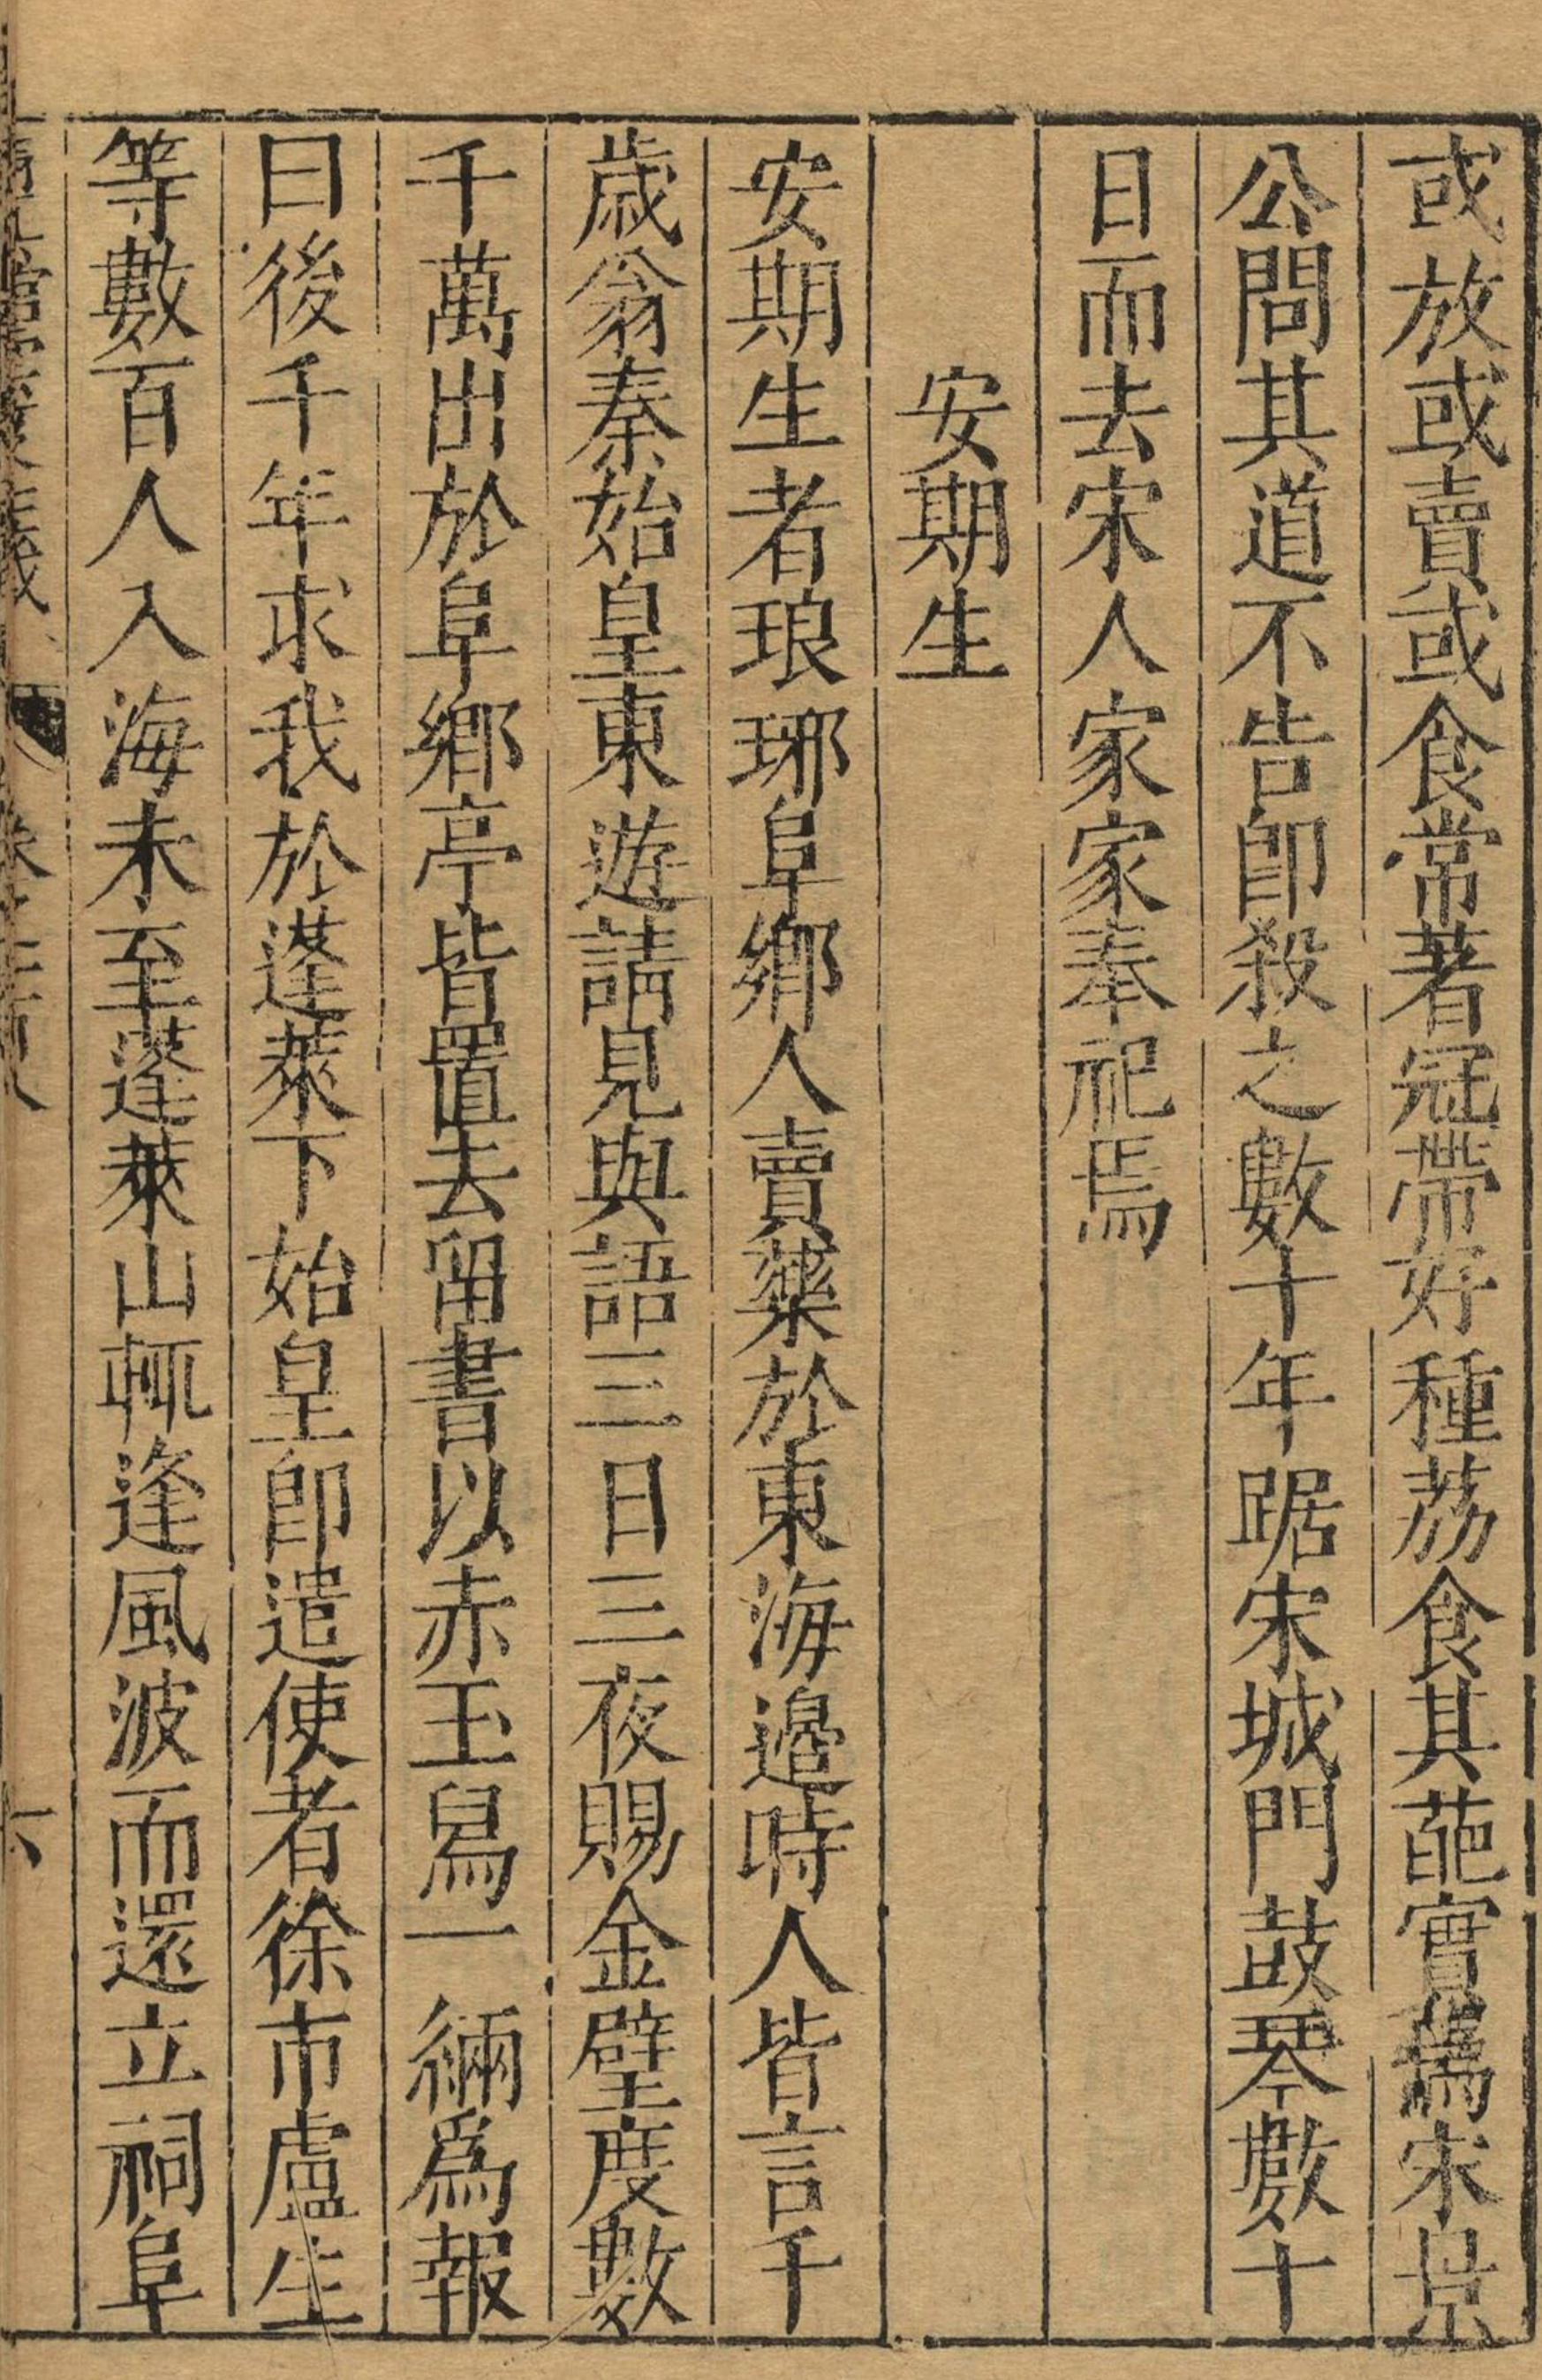 或放或賣或食常著冠帶好種荔食其葩實焉宋景
公問其道不告即殺之數十年踞宋城門鼓琴數十
日而去宋人家家奉祀焉
安期生
安期生者琅琊阜鄉人賣藥於東海邊時人皆言千
歲翁秦始皇東遊請見與語三日三夜賜金璧度數
千萬出於阜鄉亭皆置去留書以赤玉舄一緉爲報
曰後千年求我於蓬萊下始皇即遣使者徐市盧生
等數百人入海未至蓬萊山輒逢風波而還立祠阜
六